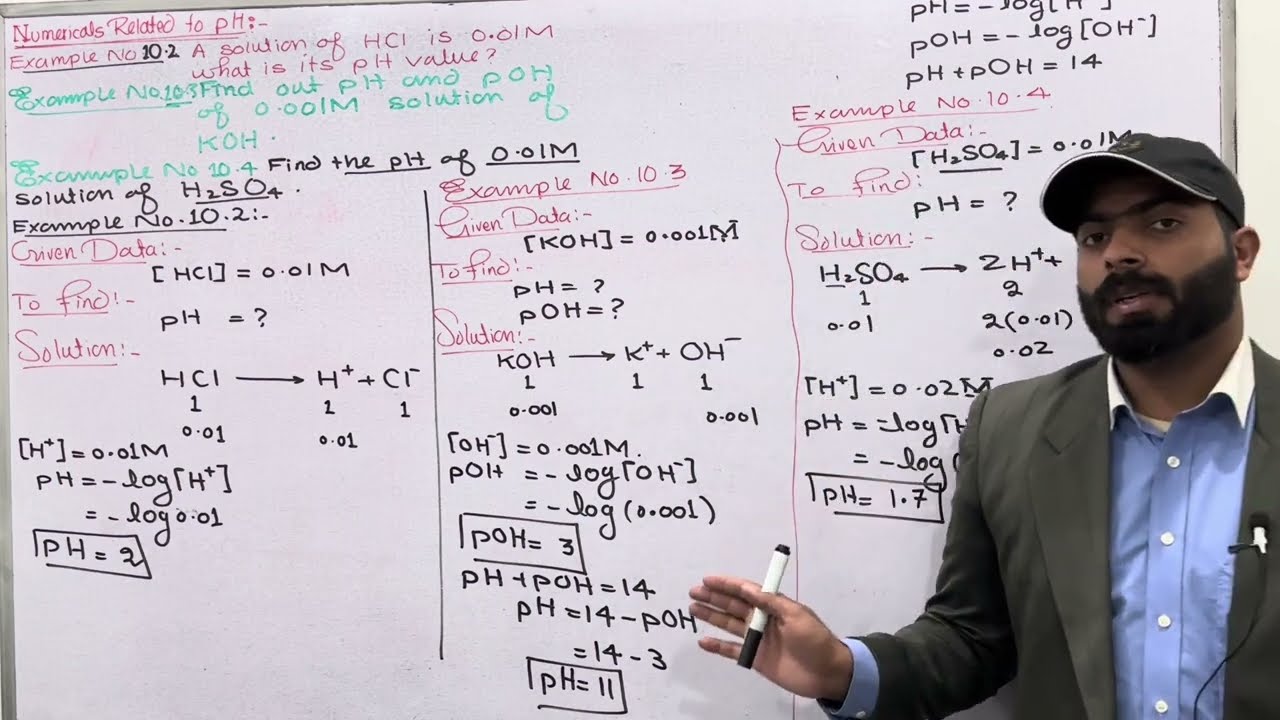 Numericals Related to pH:-
Example No 10.2 A solution of HCl is 0.01M
what is its pH value?
Example No.10.3 Find out pH and pOH
of 0.001M solution of
KOH.
Example No 10.4 Find the pH of 0.01M
solution of H₂SO₄.
Example No.10.2:-
Given Data:-
[HCl] = 0.01M
To find:-
pH = ?
Solution:-
HCl → H⁺ + Cl⁻
1 1 1
0.01 0.01
[H⁺] = 0.01M
pH = -log[H⁺]
= -log 0.01
pH = 2
Example No.10.3
Given Data:-
[KOH] = 0.001M
To find:-
pH = ?
pOH = ?
Solution:-
KOH → K⁺ + OH⁻
1 1 1
0.001 0.001
[OH⁻] = 0.001M.
pOH = -log[OH⁻]
= -log(0.001)
pOH = 3
pH + pOH = 14
pH = 14 - pOH
= 14 - 3
pH = 11
pH = -log[H⁺]
pOH = -log[OH⁻]
pH + pOH = 14
Example No.10.4
Given Data:-
[H₂SO₄] = 0.01M
To find:
pH = ?
Solution:-
H₂SO₄ → 2H⁺ +
1 2
0.01 2(0.01)
0.02
[H⁺] = 0.02M
pH = -log[H
= -log(
pH = 1.7